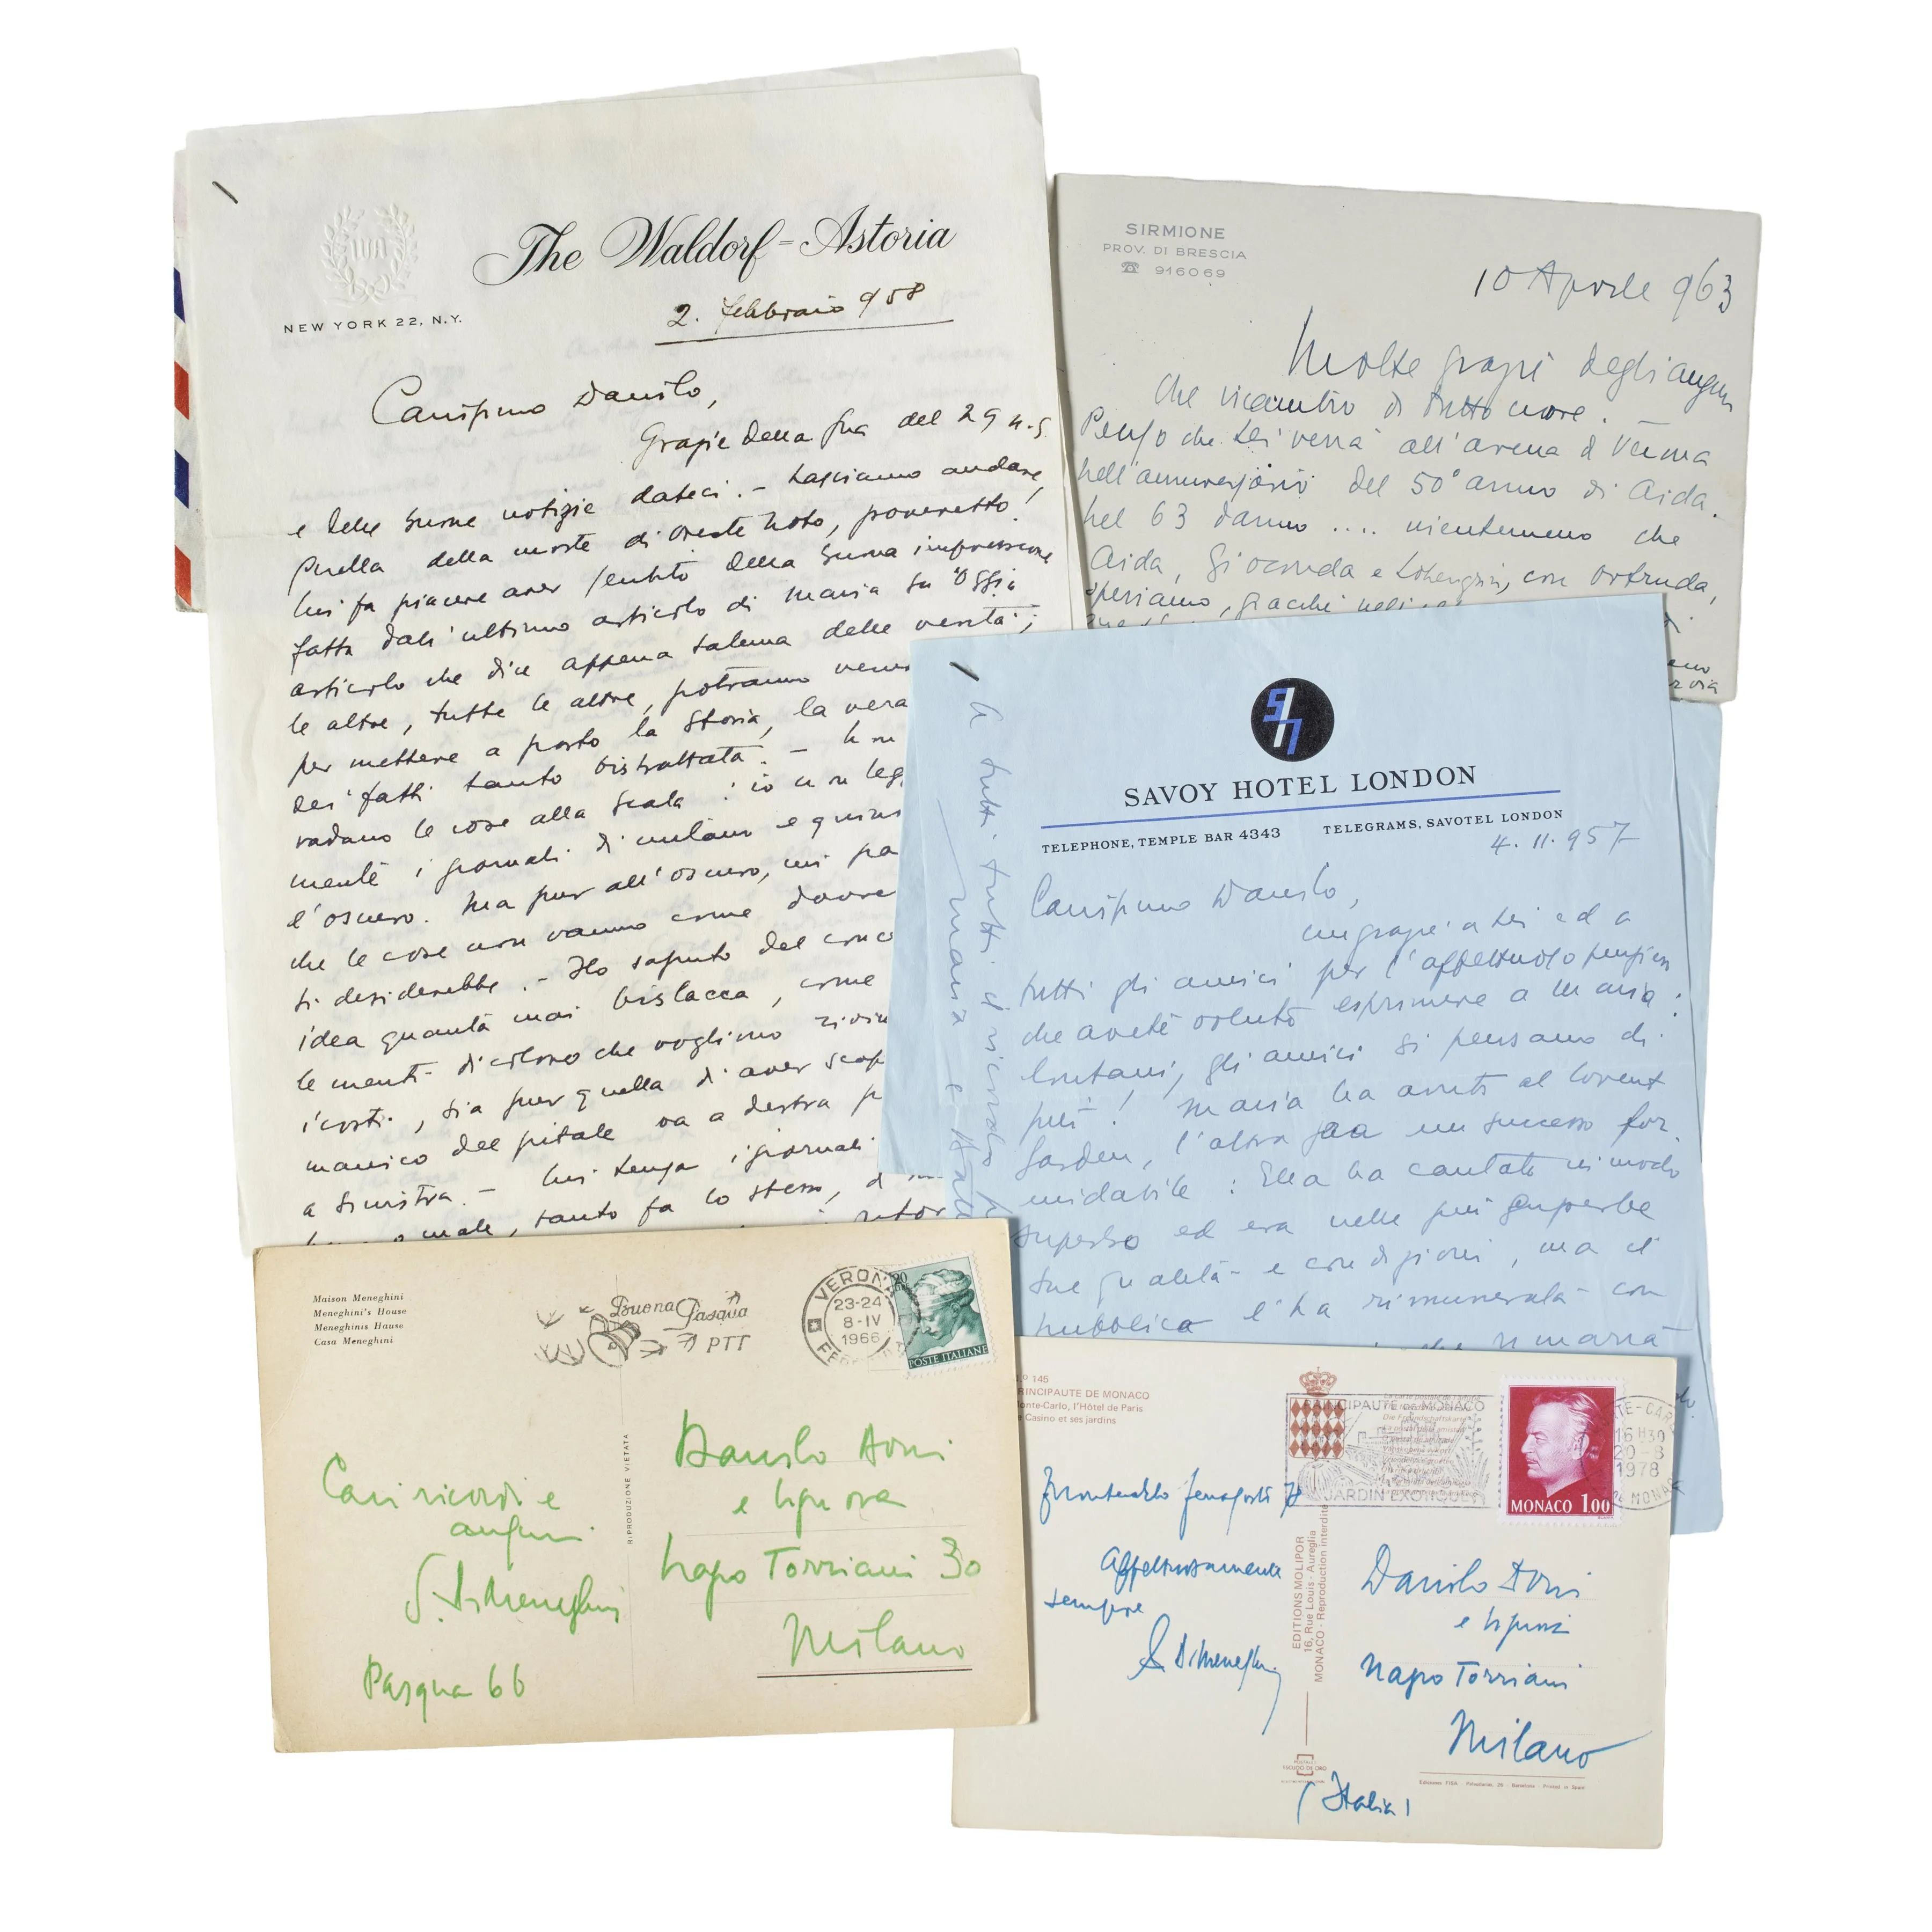 The Waldorf=Astoria
NEW YORK 22, N.Y.
2. febbraio 958
Carissimo Danilo,
Grazie della sua del 29 u.s.
e delle buone notizie dateci. - Lasciamo andare,
quella della morte di Oreste Noto, poveretto!
Mi fa piacere aver sentito della buona impressione
fatta dall'ultimo articolo di Maria su "Oggi"
articolo che dice appena taluna delle verità;
le altre, tutte le altre, potranno
per mettere a posto la storia, la vera
dei fatti tanto bistrattata. -
vadano le cose alla Scala: io non
mente i giornali di Milano e
l'oscuro. Ma pur all'oscuro, mi
che le cose non vanno come
si desiderebbe. - Ho saputo del
idea quanta mai bislacca, come
le menti di coloro che vogliono
i costi, sia pur quella di aver
manico del pitale va a destra
a sinistra. - Mi tenga i giornali
o male, tanto fa lo stesso,
SIRMIONE
PROV. DI BRESCIA
☎ 916069
10 Aprile 963
Molte grazie degli auguri
che ricambio di tutto cuore. -
Penso che Lei verrà all'arena di Verona
nell'anniversario del 50° anno di Aida.
Nel 63 danno .... nientemeno che
Aida, Gioconda e Lohengrin, con Ortruda,
speriamo, giacché
SAVOY HOTEL LONDON
TELEPHONE, TEMPLE BAR 4343
TELEGRAMS, SAVOTEL LONDON
4.11.957
Carissimo Danilo,
un grazie a Lei ed a
tutti gli amici per l'affettuoso pensiero
che avete voluto esprimere a Maria:
lontani, gli amici si pensano di
più! Maria ha avuto al Covent
Garden, l'altra sera un successo for-
midabile: Ella ha cantato in modo
superbo ed era nelle più superbe
sue qualità e condizioni, ma il
pubblico l'ha rimunerata con
rimarrà
A tutti tutti il ricordo
Maria e
Maison Meneghini
Meneghini's House
Meneghinis Hause
Casa Meneghini
Buona Pasqua
PTT
VERONA
23-24
8-IV
1966
POSTE ITALIANE
RIPRODUZIONE VIETATA
Cari ricordi e
auguri
G. B. Meneghini
Pasqua 66
Danilo Aoni
e Signora
Napo Torriani 30
Milano
N° 145
PRINCIPAUTE DE MONACO
Monte-Carlo, l'Hôtel de Paris
e Casino et ses jardins
PRINCIPAUTE DE MONACO
JARDIN EXOTIQUE
MONACO 1.00
16H30
20-8
1978
Montecarlo ferragosto 78
Affettuosamente
sempre
G B Meneghini
EDITIONS MOLIPOR
16, Rue Louis - Aureglia
MONACO - Reproduction interdite
Danilo Aoni
e Signora
Napo Torriani
Milano
(Italia)
ESCUDO DE ORO